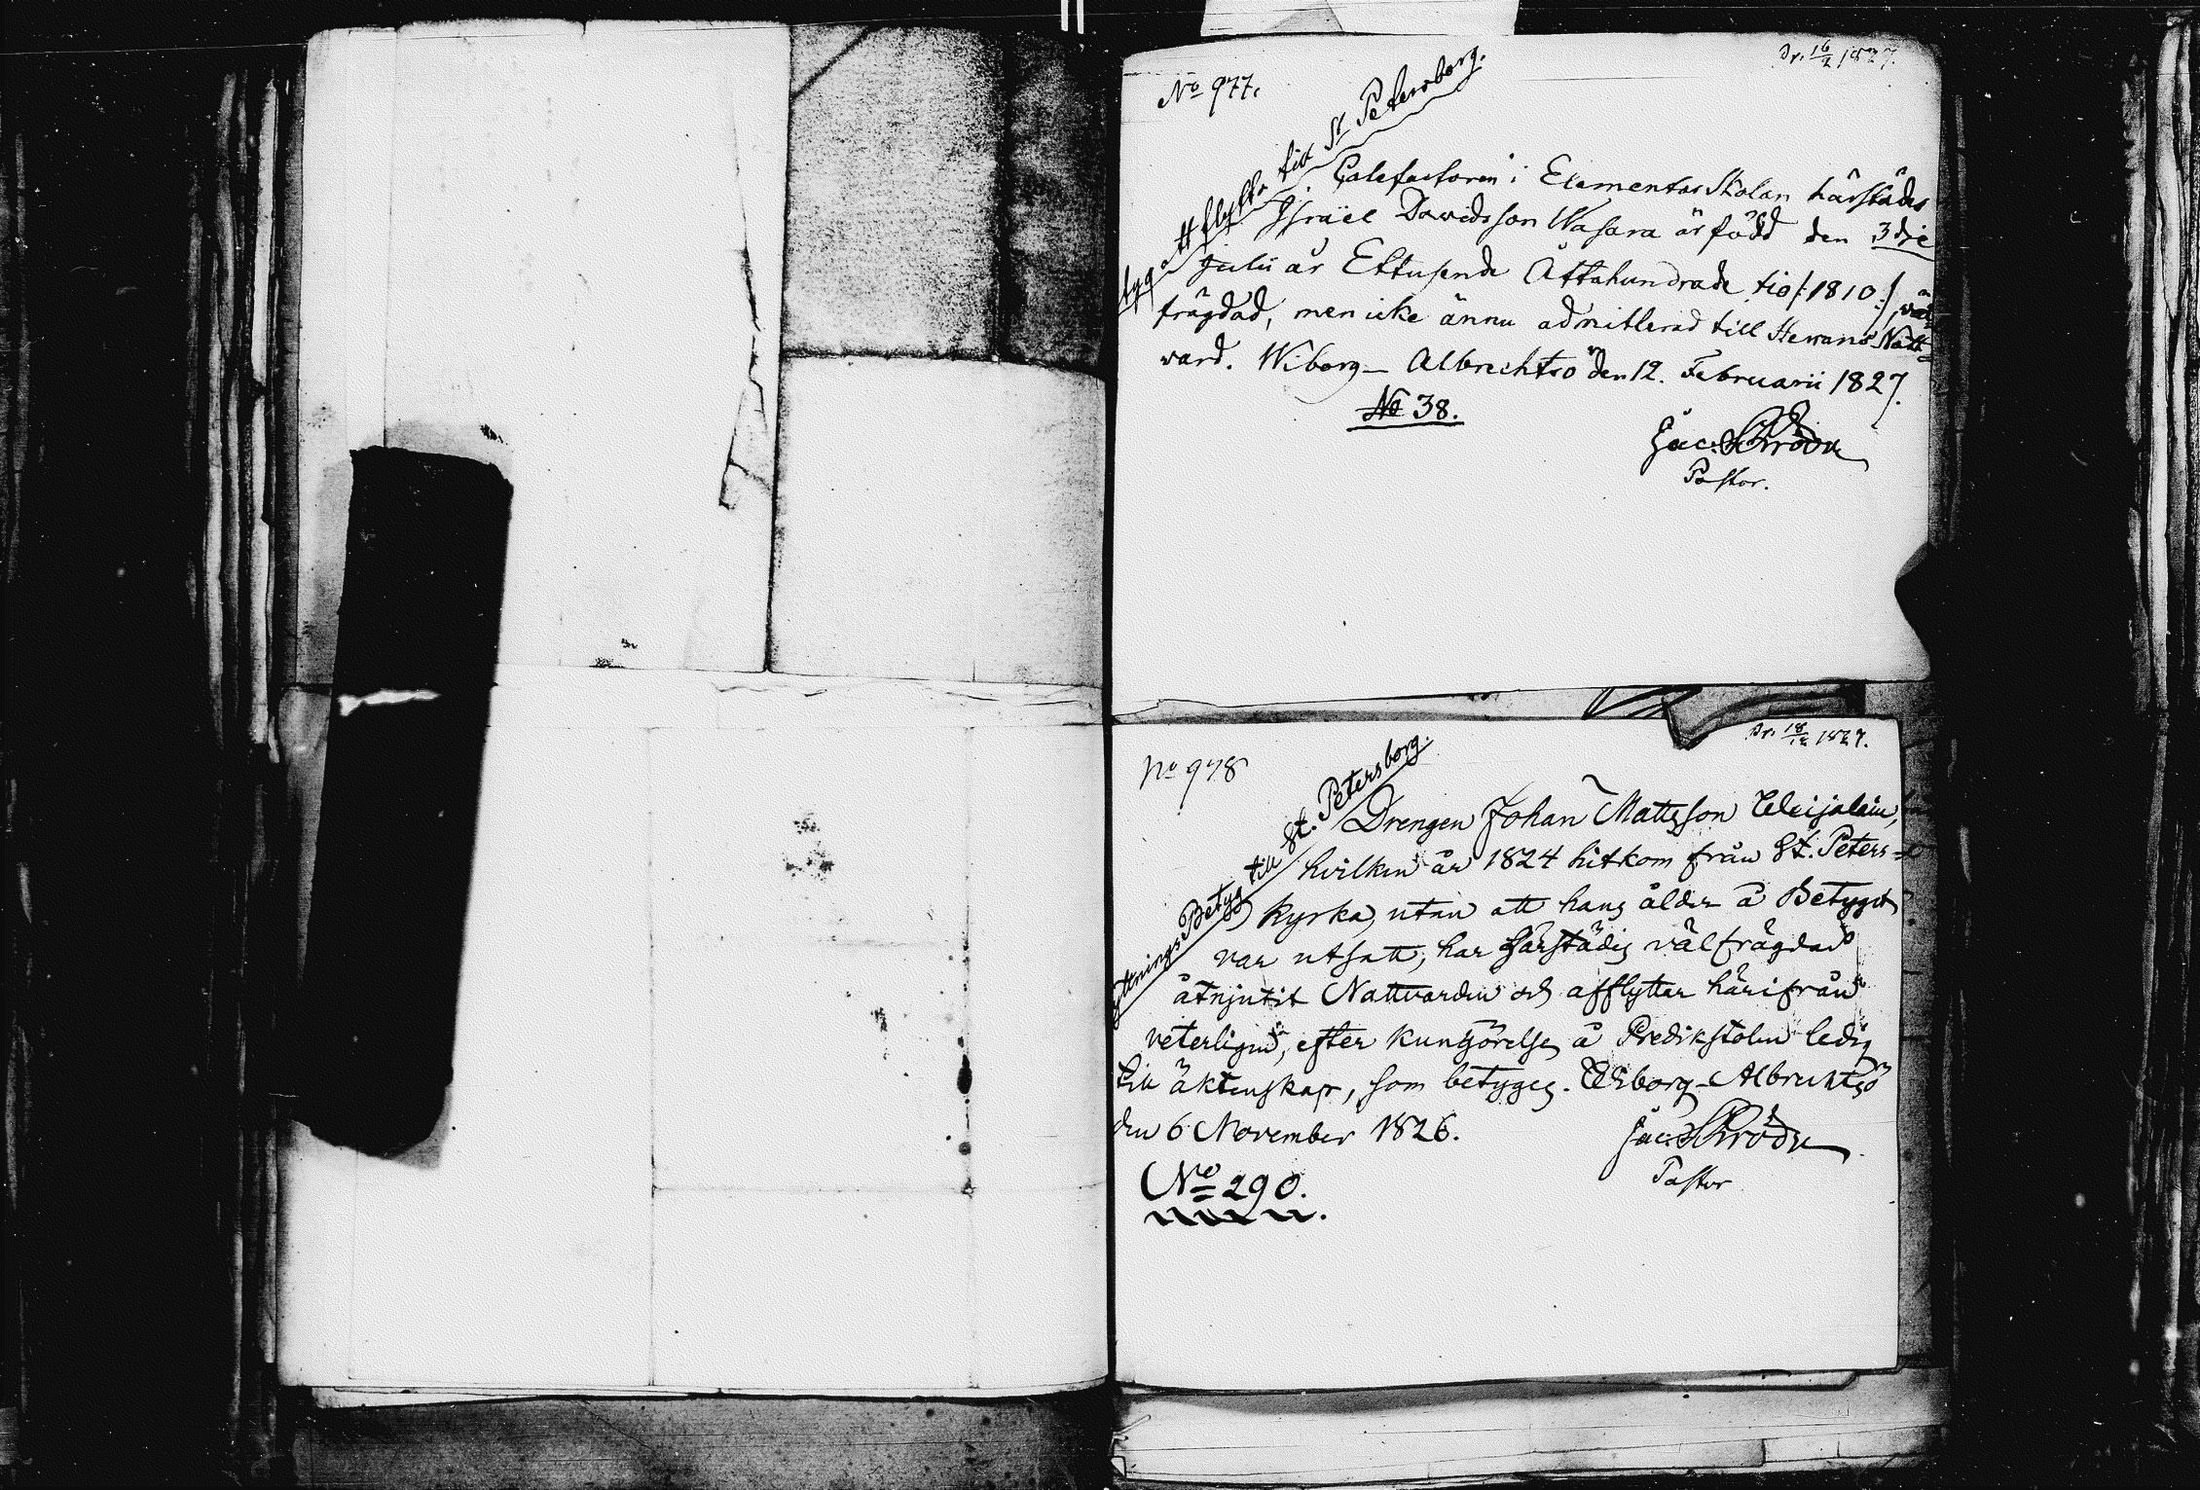 No 977.
Pr. 16/2 1827.
att flytta till St Petersborg.
Calefactoren i Elementar Skolan härstädes
Israël Davidsson Wasara är född den 3dje
Julii år Ettusende Åttahundrade tio /:1810:/, väl
frägdad, men icke ännu admitterad till Herrans Natt-
vard. Wiborg - Albrechtsö den 12. Februarii 1827.
No 38.
Jac: Schröder
Pastor.
No 978
Pr. 18/12 1827.
flyttnings Betyg till St. Petersborg.
Drengen Johan Mattsson
hvilken år 1824 hitkom från St. Peters-
kyrka, utan att hans ålder å Betyget
var utsatt, har härstädes välfrägdad
åtnjutit Nattvarden och afflyttar härifrån
veterligen, efter kungörelse å Predikstolen ledig
till äktenskap, som betygas. Wiborg - Albrechtsö
den 6 November 1826.
Jac: Schröder
Pastor
No 290.